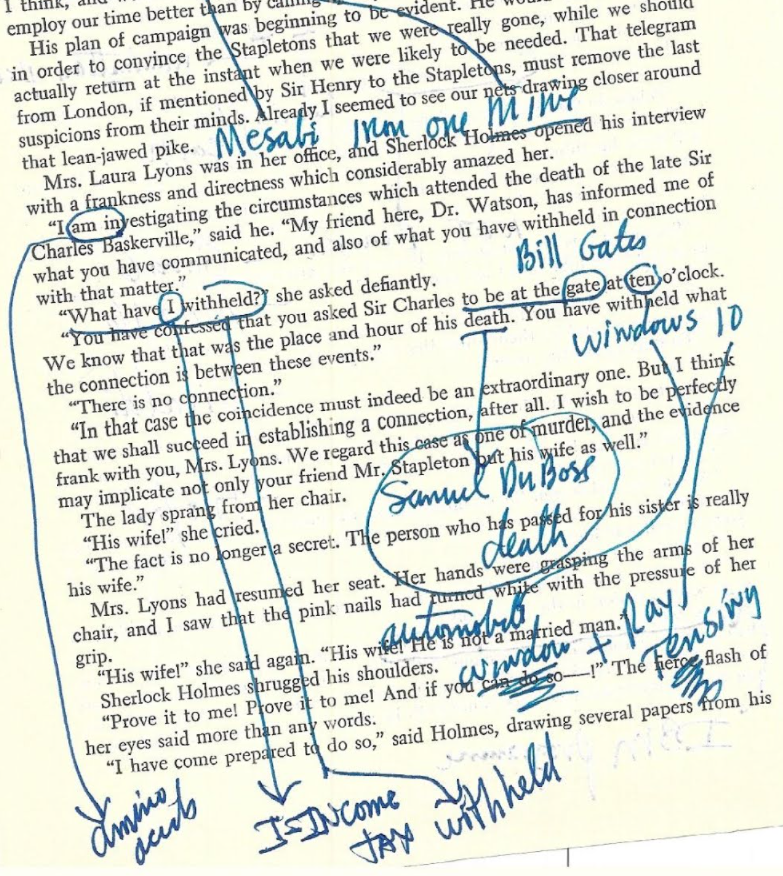 I think, and
employ our time better than by calling
His plan of campaign was beginning to be evident. He
in order to convince the Stapletons that we were really gone, while we should
actually return at the instant when we were likely to be needed. That telegram
from London, if mentioned by Sir Henry to the Stapletons, must remove the last
suspicions from their minds. Already I seemed to see our nets drawing closer around
that lean-jawed pike.
Mesabi Iron ore Mine
Mrs. Laura Lyons was in her office, and Sherlock Holmes opened his interview
with a frankness and directness which considerably amazed her.
“I am investigating the circumstances which attended the death of the late Sir
Charles Baskerville,” said he. “My friend here, Dr. Watson, has informed me of
what you have communicated, and also of what you have withheld in connection
with that matter.”
Bill Gates
“What have I withheld?” she asked defiantly.
“You have confessed that you asked Sir Charles to be at the gate at ten o’clock.
We know that that was the place and hour of his death. You have withheld what
the connection is between these events.”
windows 10
“There is no connection.”
“In that case the coincidence must indeed be an extraordinary one. But I think
that we shall succeed in establishing a connection, after all. I wish to be perfectly
frank with you, Mrs. Lyons. We regard this case as one of murder, and the evidence
may implicate not only your friend Mr. Stapleton but his wife as well.”
Samuel DuBose
death
The lady sprang from her chair.
“His wife!” she cried.
“The fact is no longer a secret. The person who has passed for his sister is really
his wife.”
Mrs. Lyons had resumed her seat. Her hands were grasping the arms of her
chair, and I saw that the pink nails had turned white with the pressure of her
grip.
automobile
window + Ray
Tensing
“His wife!” she said again. “His wife! He is not a married man.”
Sherlock Holmes shrugged his shoulders.
“Prove it to me! Prove it to me! And if you can do so——!” The fierce flash of
her eyes said more than any words.
“I have come prepared to do so,” said Holmes, drawing several papers from his
amino
acids
I=Income
TAX withheld